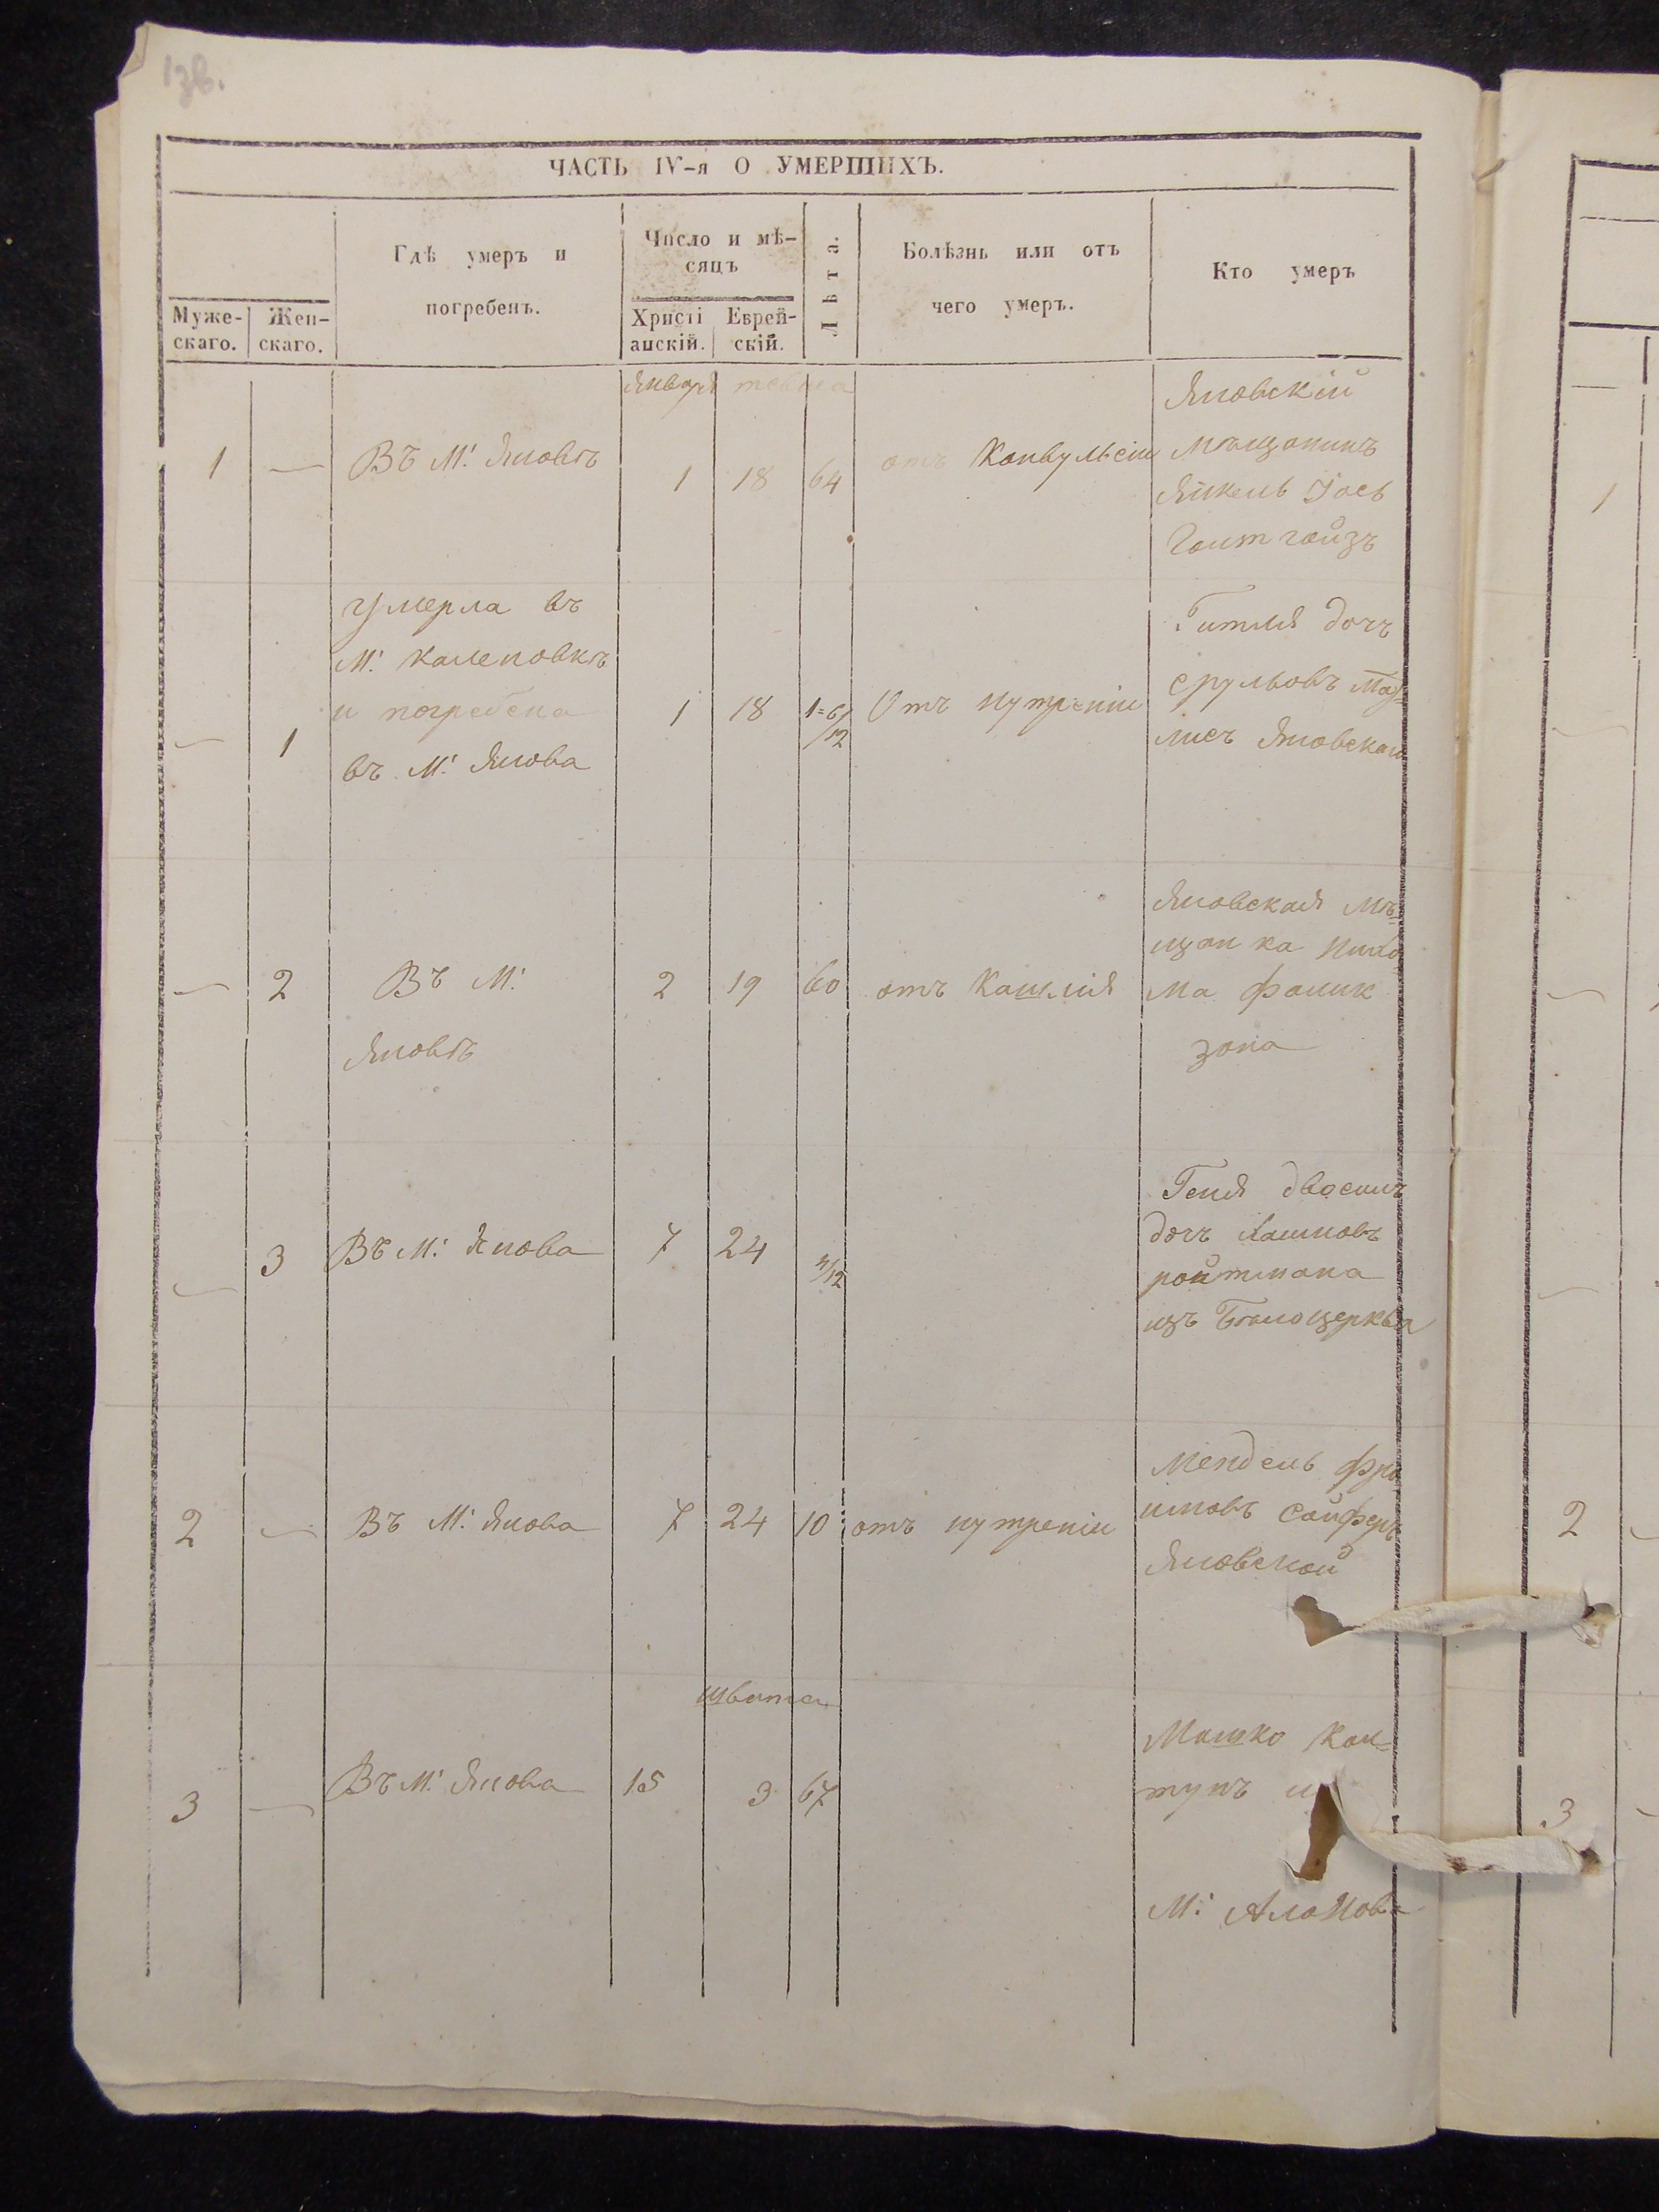 ЧАСТЬ IV-я О УМЕРШИХЪ.
Муже-
скаго.
Жен-
скаго.
Гдѣ умеръ и
погребенъ.
Число и мѣ-
сяцъ
Христі
анскій.
Еврей-
скій.
Лѣта.
Болѣзнь или отъ
чего умеръ.
Кто умеръ
Января тевеса
1 — Въ М: Яновѣ 1 18 64 отъ Конвульсіи
Яновскій
мѣщанинъ
Янкель Іось
Гоитгойзъ
умерла въ
М: Калиновкѣ
и погребена
въ М: Янова
— 1 1 18 1=6/12 Отъ нутреніи
Гитля дочъ
Срульовъ
Яновскаго
— 2 Въ М: 2 19 60 отъ Кашлія
Яновѣ
Яновская мѣ-
щанка
ма Фаинк
зона
— 3 Въ М: Янова 7 24 /12
Геня двосинъ
дочъ Хаимовъ
ройтмана
изъ Бѣлоцерква
2 — Въ М: Янова 7 24 10 отъ нутреніи
Мендель Фро
имовъ Сойферъ
Яновской
швата
3 — Въ М: Янова 15 3 67
Мошко Кан-
тунъ
М:
1
2
3